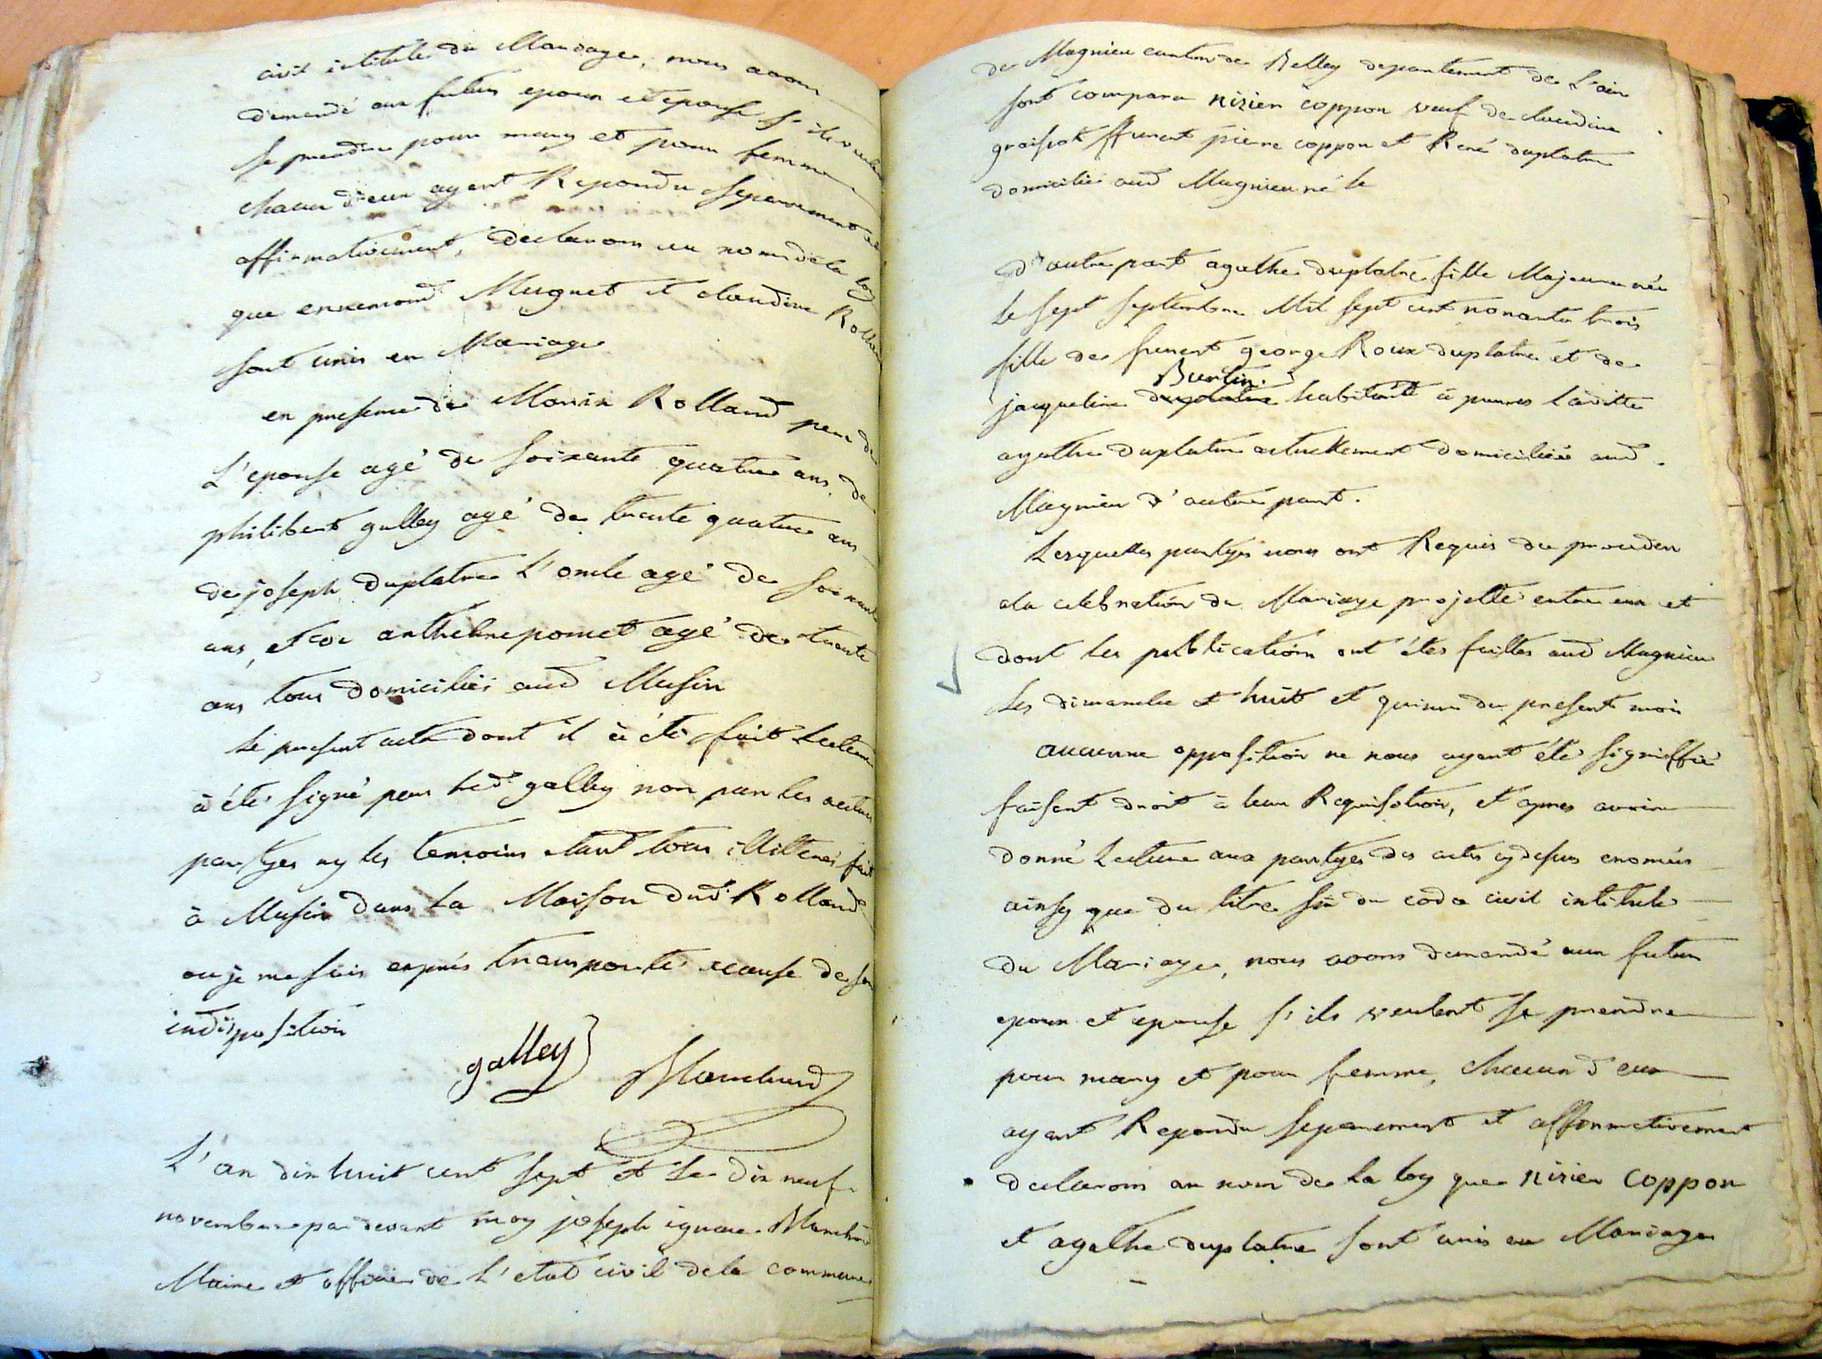 civil intitule du Mariage, nous avons
demandé aux futurs epoux et epouse s'ils veulent
se prendre pour mary et pour femme
chacun d'eux ayant Repondu separement et
affirmativement, declarons au nom de la loy
que ennemond Mugnet et claudine Rolland
sont unis en Mariage
en presence de Morix Rolland pere de
L'epouse agé de soixante quatre ans, de
philibert galley agé de trente quatre ans
de joseph duplatre L'oncle agé de soixante
ans, et de anthelme pomet agé de trente
ans tous domiciliés aud Musin
Le present acte dont il à été fait Lecture
à été signé par led galley non par les autres
partyes ny les temoins etant tous illiterés fait
à Musin dans La Maison dud Rolland
ou je me suis exprés transporté acause de son
indisposition
galley Blanchard
L'an dix huit cent sept et le dix neuf
novembre par devant moy joseph ignace Blanchard
Maire et officier de L'etat civil de la commune
de Magnieu canton de Belley departement de L'ain
sont comparu nizier coppon veuf de claudine
groissat pierre coppon et René duplatre
domicilié aud Magnieu né le
d'autre part agathe duplatre fille Majeure née
le sept septembre Mil sept cent nonante trois
fille de george Roux duplatre et de
Burtin
jacqueline duplatre habitant à Laditte
agathe duplatre actuellement domiciliée aud
Magnieu d'autre part.
Lesquelles partyes nous ont Requis de proceder
ala celebration du Mariage projetté entre eux et
dont les publications ont étés faittes aud Magnieu
Les dimanche et huit et quinze du present mois
aucunne opposition ne nous ayant été signiffié
faisant droit à leur Requisition, et apres avoir
donné Lecture aux partyes des actes cydesus enomées
ainsy que du titre six du code civil intitulé
du Mariage, nous avons demandé aux futurs
epoux et epouse s'ils veulent se prendre
pour mary et pour femme, chacun d'eux
ayant Repondu separement et affirmativement
declarons au nom de la loy que nizier coppon
et agathe duplatre sont unis en Mariage